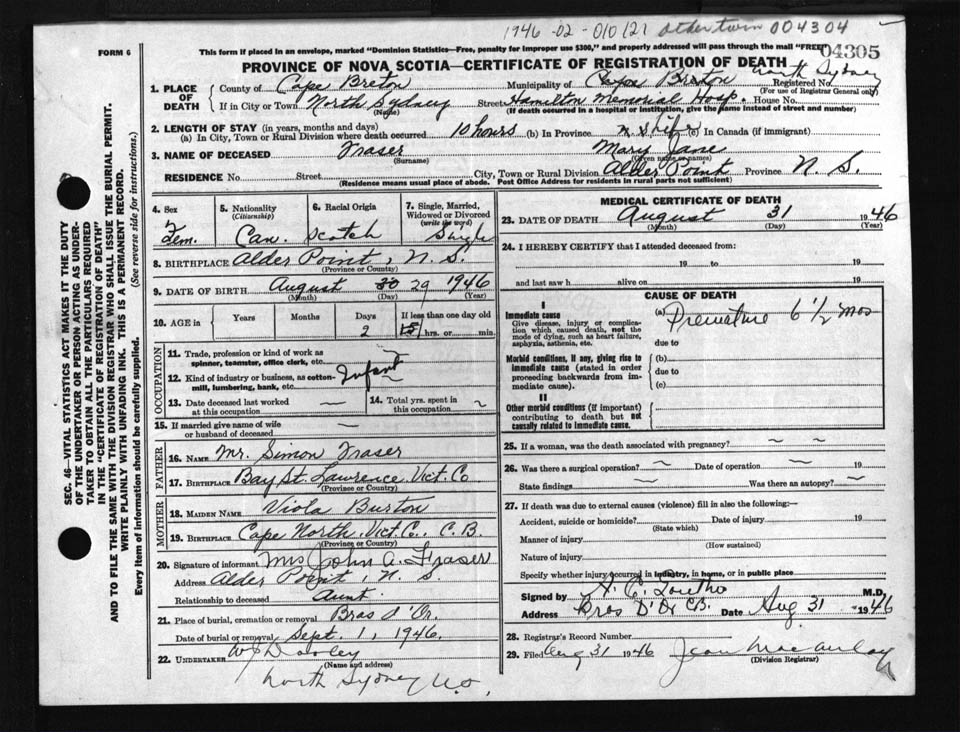 1946-02-010121 other twin 004304
FORM 6
This form if placed in an envelope, marked "Dominion Statistics—Free, penalty for improper use $300," and properly addressed will pass through the mail "FREE"
04305
PROVINCE OF NOVA SCOTIA—CERTIFICATE OF REGISTRATION OF DEATH
1. PLACE OF DEATH
County of Cape Breton Municipality of Cape Breton North Sydney Registered No.
(For use of Registrar General only)
If in City or Town North Sydney Street Hamilton Memorial Hosp. House No.
(Name) (If death occurred in a hospital or institution, give the name instead of street and number)
2. LENGTH OF STAY (in years, months and days)
(a) In City, Town or Rural Division where death occurred 10 hours (b) In Province N.S. Life (c) In Canada (if immigrant)
3. NAME OF DECEASED Fraser Mary Jane
(Surname) (Given name or names)
RESIDENCE No. Street City, Town or Rural Division Alder Point Province N. S.
(Residence means usual place of abode. Post Office Address for residents in rural parts not sufficient)
4. Sex Fem.
5. Nationality (Citizenship) Can.
6. Racial Origin Scotch
7. Single, Married, Widowed or Divorced (write the word) Single
8. BIRTHPLACE Alder Point, N. S.
(Province or Country)
9. DATE OF BIRTH August 30 29 1946
(Month) (Day) (Year)
10. AGE in Years Months Days 2 If less than one day old 15 hrs. or min.
OCCUPATION
11. Trade, profession or kind of work as spinner, teamster, office clerk, etc.
12. Kind of industry or business, as cotton-mill, lumbering, bank, etc. Infant
13. Date deceased last worked at this occupation —
14. Total yrs. spent in this occupation ~
15. If married give name of wife or husband of deceased —
FATHER
16. NAME Mr. Simon Fraser
17. BIRTHPLACE Bay St. Lawrence Vict. Co
(Province or Country)
MOTHER
18. MAIDEN NAME Viola Burton
19. BIRTHPLACE Cape North, Vict. Co., C.B.
(Province or Country)
20. Signature of informant Mrs John A. Fraser
Address Alder Point, N. S.
Relationship to deceased Aunt.
21. Place of burial, cremation or removal Bras d'Or.
Date of burial or removal Sept. 1, 1946.
22. UNDERTAKER W J Dooley
(Name and address)
North Sydney N.S.
MEDICAL CERTIFICATE OF DEATH
23. DATE OF DEATH August 31 1946
(Month) (Day) (Year)
24. I HEREBY CERTIFY that I attended deceased from:
19 to 19
and last saw h alive on 19
CAUSE OF DEATH
I
Immediate cause
Give disease, injury or complication which caused death, not the mode of dying, such as heart failure, asphyxia, asthenia, etc.
(a) Premature 6 1/2 mos
due to
Morbid conditions, if any, giving rise to immediate cause (stated in order proceeding backwards from immediate cause).
(b)
due to
(c)
II
Other morbid conditions (if important) contributing to death but not causally related to immediate cause.
25. If a woman, was the death associated with pregnancy? ~ ~
26. Was there a surgical operation? ~ Date of operation ~ 19
State findings ~ Was there an autopsy? ~
27. If death was due to external causes (violence) fill in also the following:—
Accident, suicide or homicide? Date of injury 19
(State which)
Manner of injury
(How sustained)
Nature of injury
Specify whether injury occurred in industry, in home, or in public place
Signed by M.D.
Address Bras D'Or CB. Date Aug 31 1946
28. Registrar's Record Number
29. Filed Aug 31 1946 Jean MacAulay
(Division Registrar)
SEC. 46—VITAL STATISTICS ACT MAKES IT THE DUTY
OF THE UNDERTAKER OR PERSON ACTING AS UNDER-
TAKER TO OBTAIN ALL THE PARTICULARS REQUIRED
IN THE "CERTIFICATE OF REGISTRATION OF DEATH"
AND TO FILE THE SAME WITH THE DIVISION REGISTRAR WHO SHALL ISSUE THE BURIAL PERMIT.
WRITE PLAINLY WITH UNFADING INK. THIS IS A PERMANENT RECORD.
Every item of information should be carefully supplied. (See reverse side for instructions.)